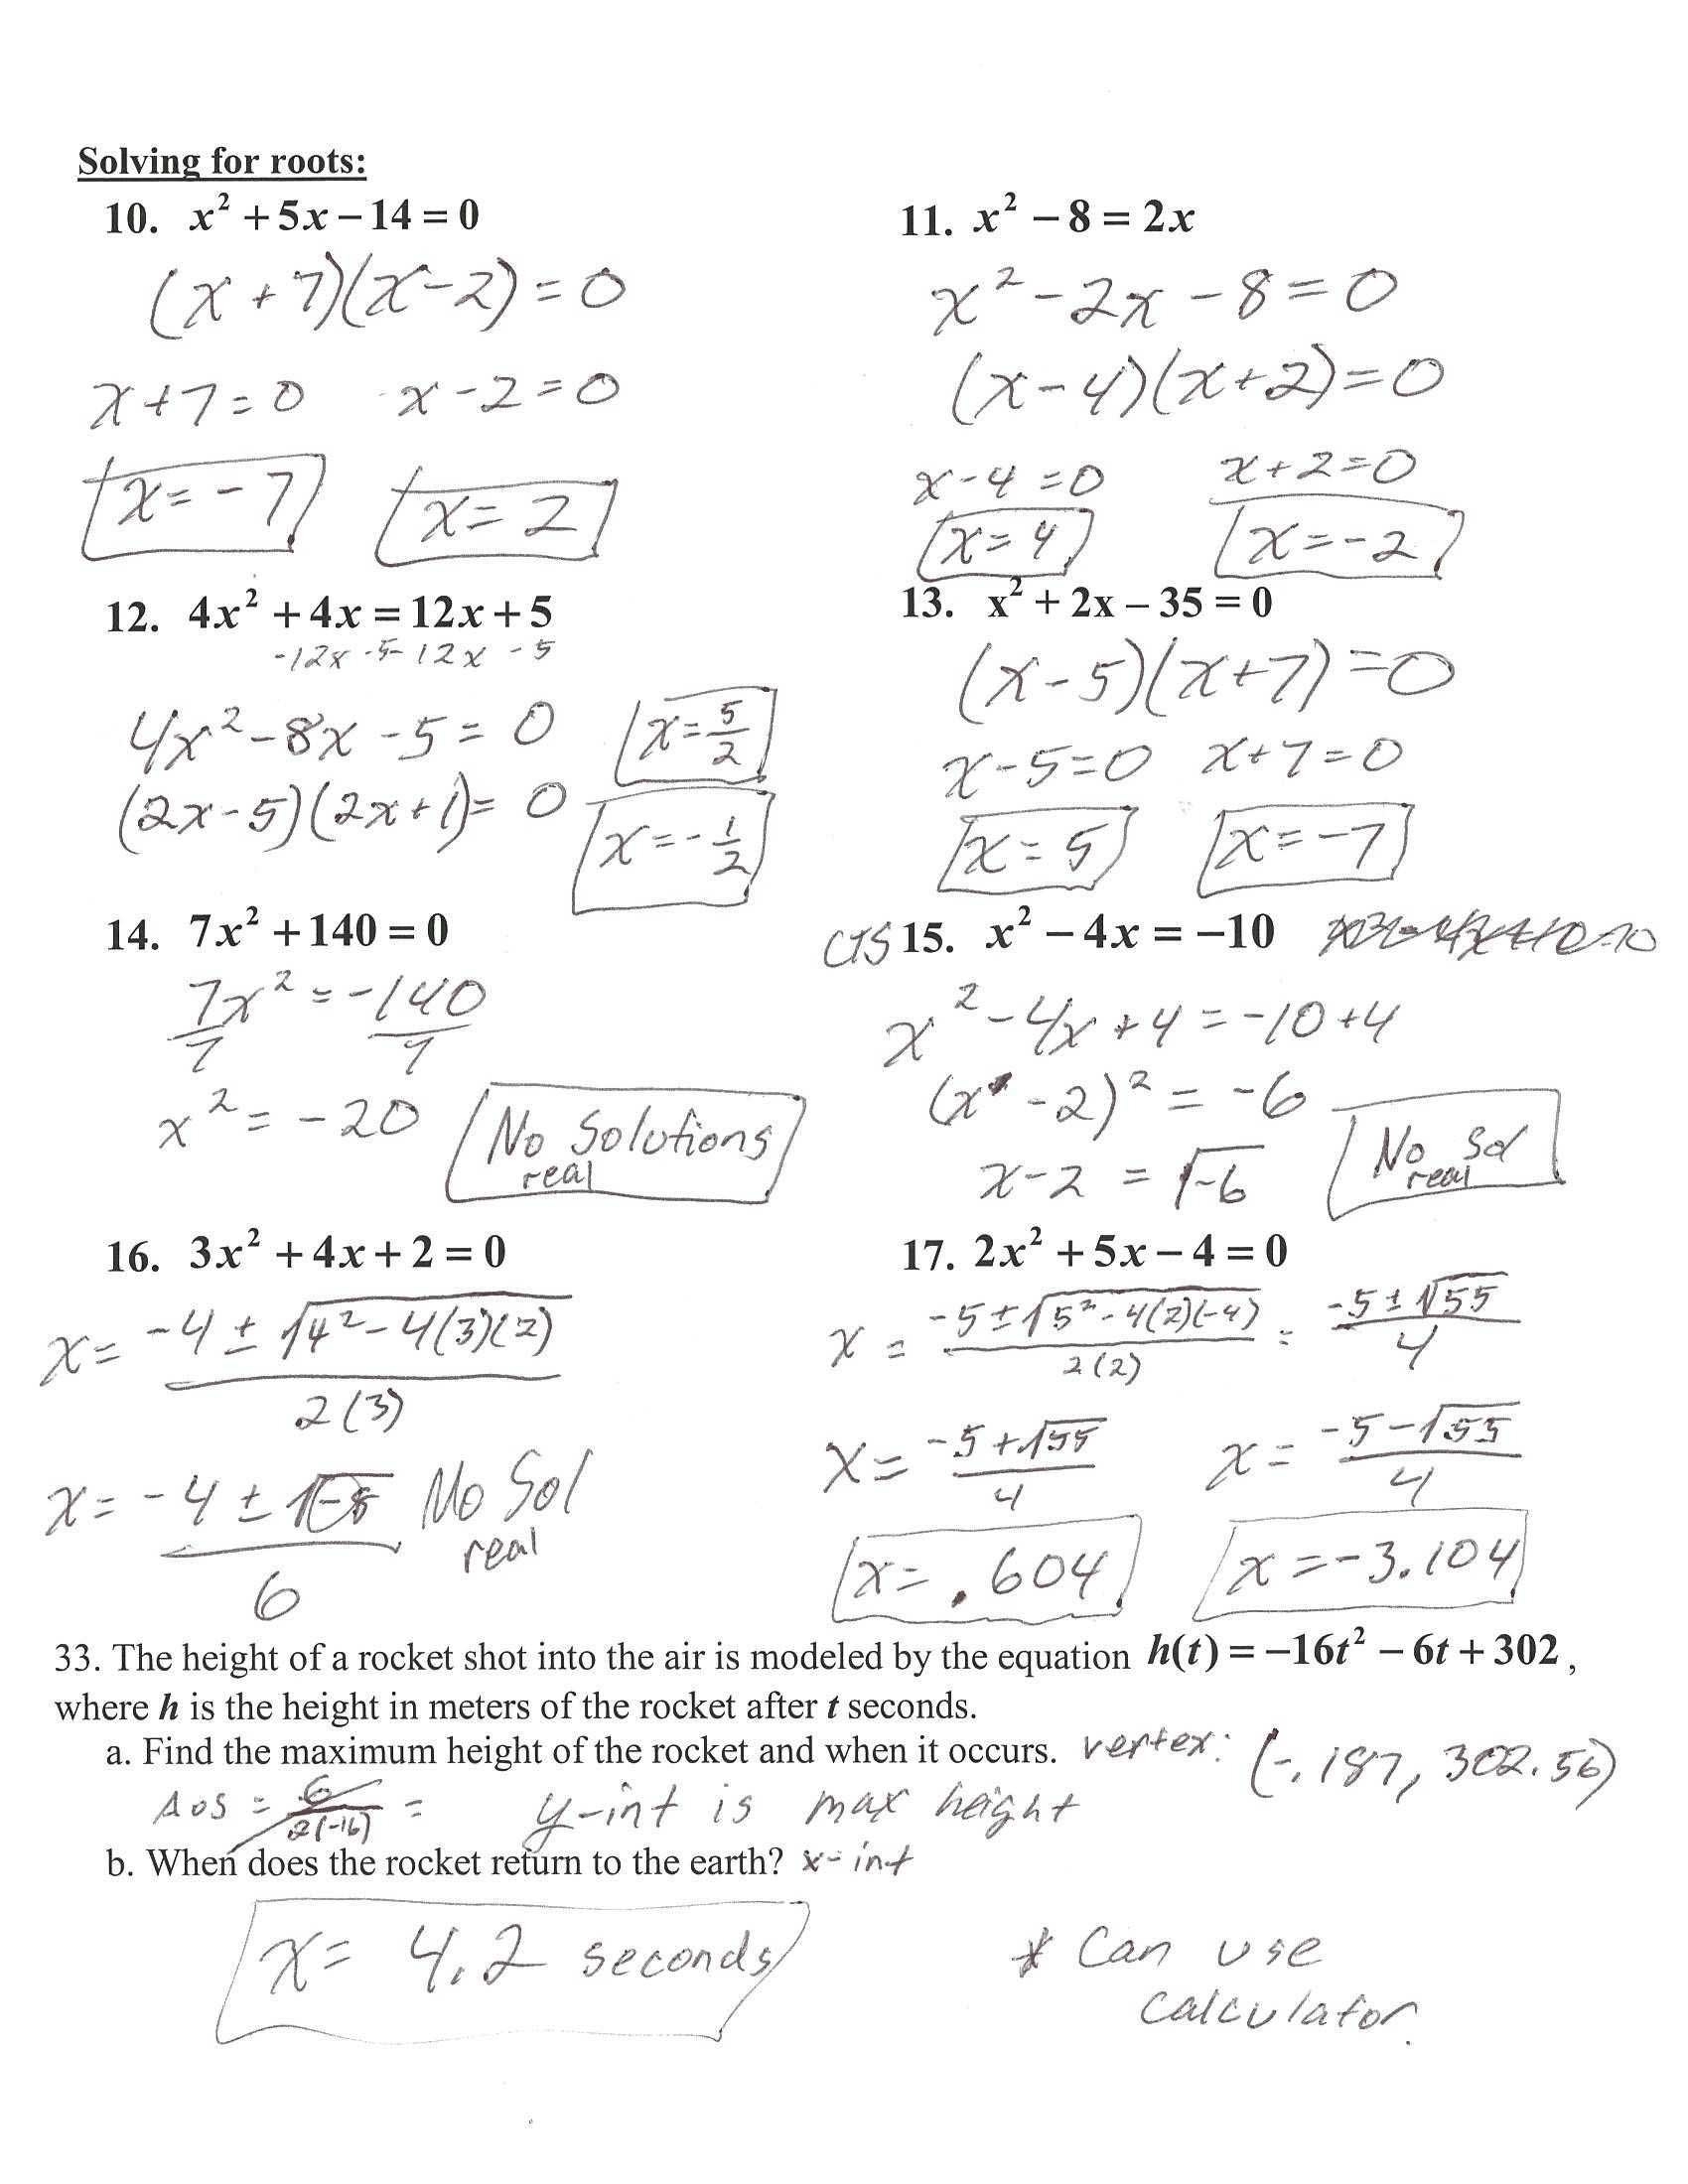 Solving for roots:
10. x² + 5x – 14 = 0
(x + 7)(x - 2) = 0
x + 7 = 0 x - 2 = 0
x = -7 x = 2
11. x² – 8 = 2x
x² - 2x - 8 = 0
(x - 4)(x + 2) = 0
x - 4 = 0 x + 2 = 0
x = 4 x = -2
12. 4x² + 4x = 12x + 5
-12x -5 -12x -5
4x² - 8x - 5 = 0
(2x - 5)(2x + 1) = 0
x = 5/2
x = -1/2
13. x² + 2x – 35 = 0
(x - 5)(x + 7) = 0
x - 5 = 0 x + 7 = 0
x = 5 x = -7
14. 7x² + 140 = 0
7x²/7 = -140/7
x² = -20
No Solutions
real
CTS 15. x² – 4x = –10
x² - 4x + 4 = -10 + 4
(x - 2)² = -6
x - 2 = √-6
No Sol
real
16. 3x² + 4x + 2 = 0
x = (-4 ± √(4² - 4(3)(2)))/(2(3))
x = (-4 ± √-8)/6 No Sol
real
17. 2x² + 5x – 4 = 0
x = (-5 ± √(5² - 4(2)(-4)))/(2(2)) = (-5 ± √55)/4
x = (-5 + √55)/4 x = (-5 - √55)/4
x = .604 x = -3.104
33. The height of a rocket shot into the air is modeled by the equation h(t) = –16t² – 6t + 302,
where h is the height in meters of the rocket after t seconds.
a. Find the maximum height of the rocket and when it occurs. vertex: (-.187, 302.56)
AOS = 6/(2(-16)) = y-int is max height
b. When does the rocket return to the earth? x-int
x = 4.2 seconds
* Can use
calculator.